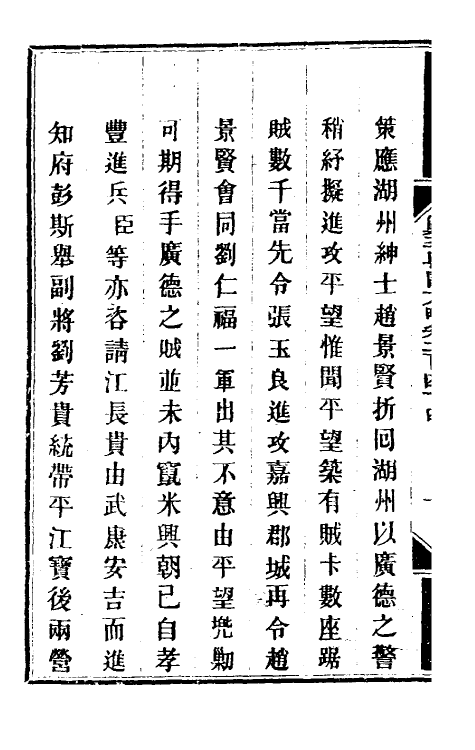 策應湖州紳士趙景賢折回湖州以廣德之警
稍紓擬進攻平望惟聞平望築有賊卡數座踞
賊數千當先令張玉良進攻嘉興郡城再令趙
景賢會同劉仁福一軍出其不意由平望兜勦
可期得手廣德之賊並未內竄米興朝已自孝
豐進兵臣等亦咨請江長貴由武康安吉而進
知府彭斯舉副將劉芳貴統帶平江寶後兩營